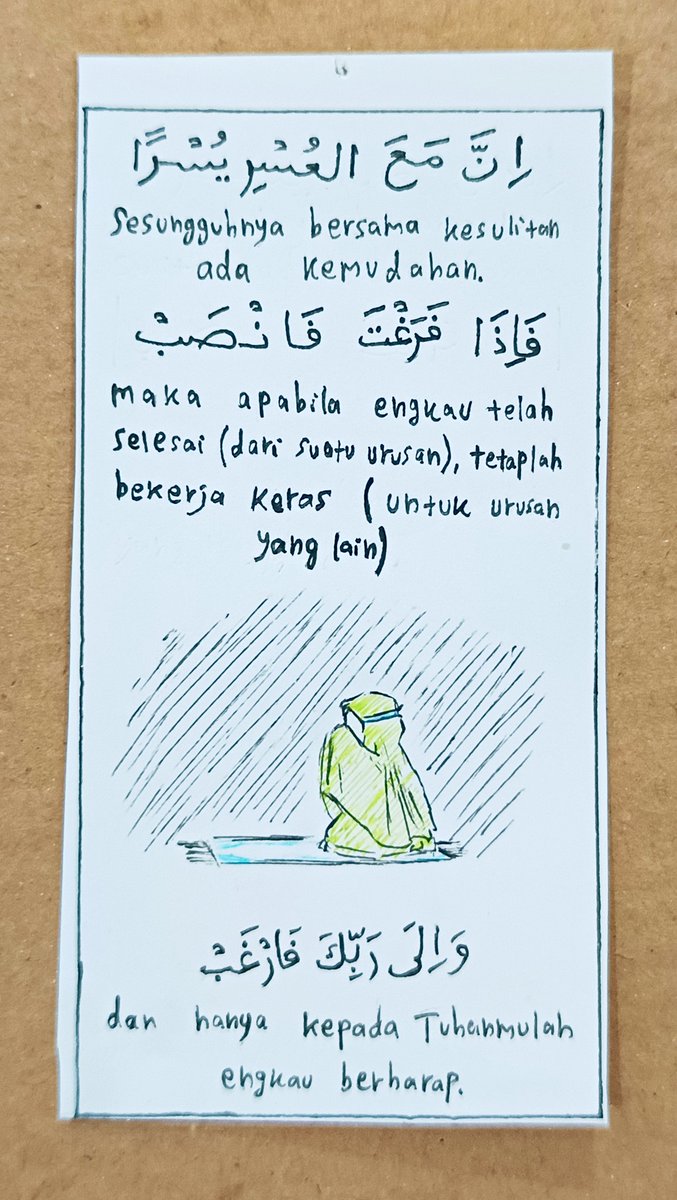 اِنَّ مَعَ الْعُسْرِ يُسْرًا
Sesungguhnya bersama kesulitan
ada kemudahan.
فَاِذَا فَرَغْتَ فَانْصَبْ
maka apabila engkau telah
selesai (dari suatu urusan), tetaplah
bekerja keras (untuk urusan
yang lain)
وَاِلَى رَبِّكَ فَارْغَبْ
dan hanya kepada Tuhanmulah
engkau berharap.